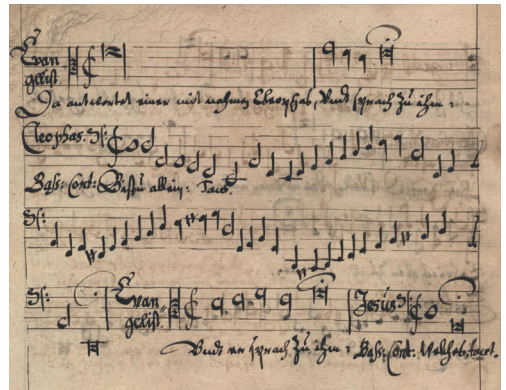 Evan
gelist.
Da antwortet einer mit nahmen Cleophas, Undt sprach zu ihm:
Cleophas.
Bass: Cont: Bistu allein: Tacet.
Evan
gelist.
Jesus
Undt er sprach zu ihm: Bass: Cont: Welches, tacet.